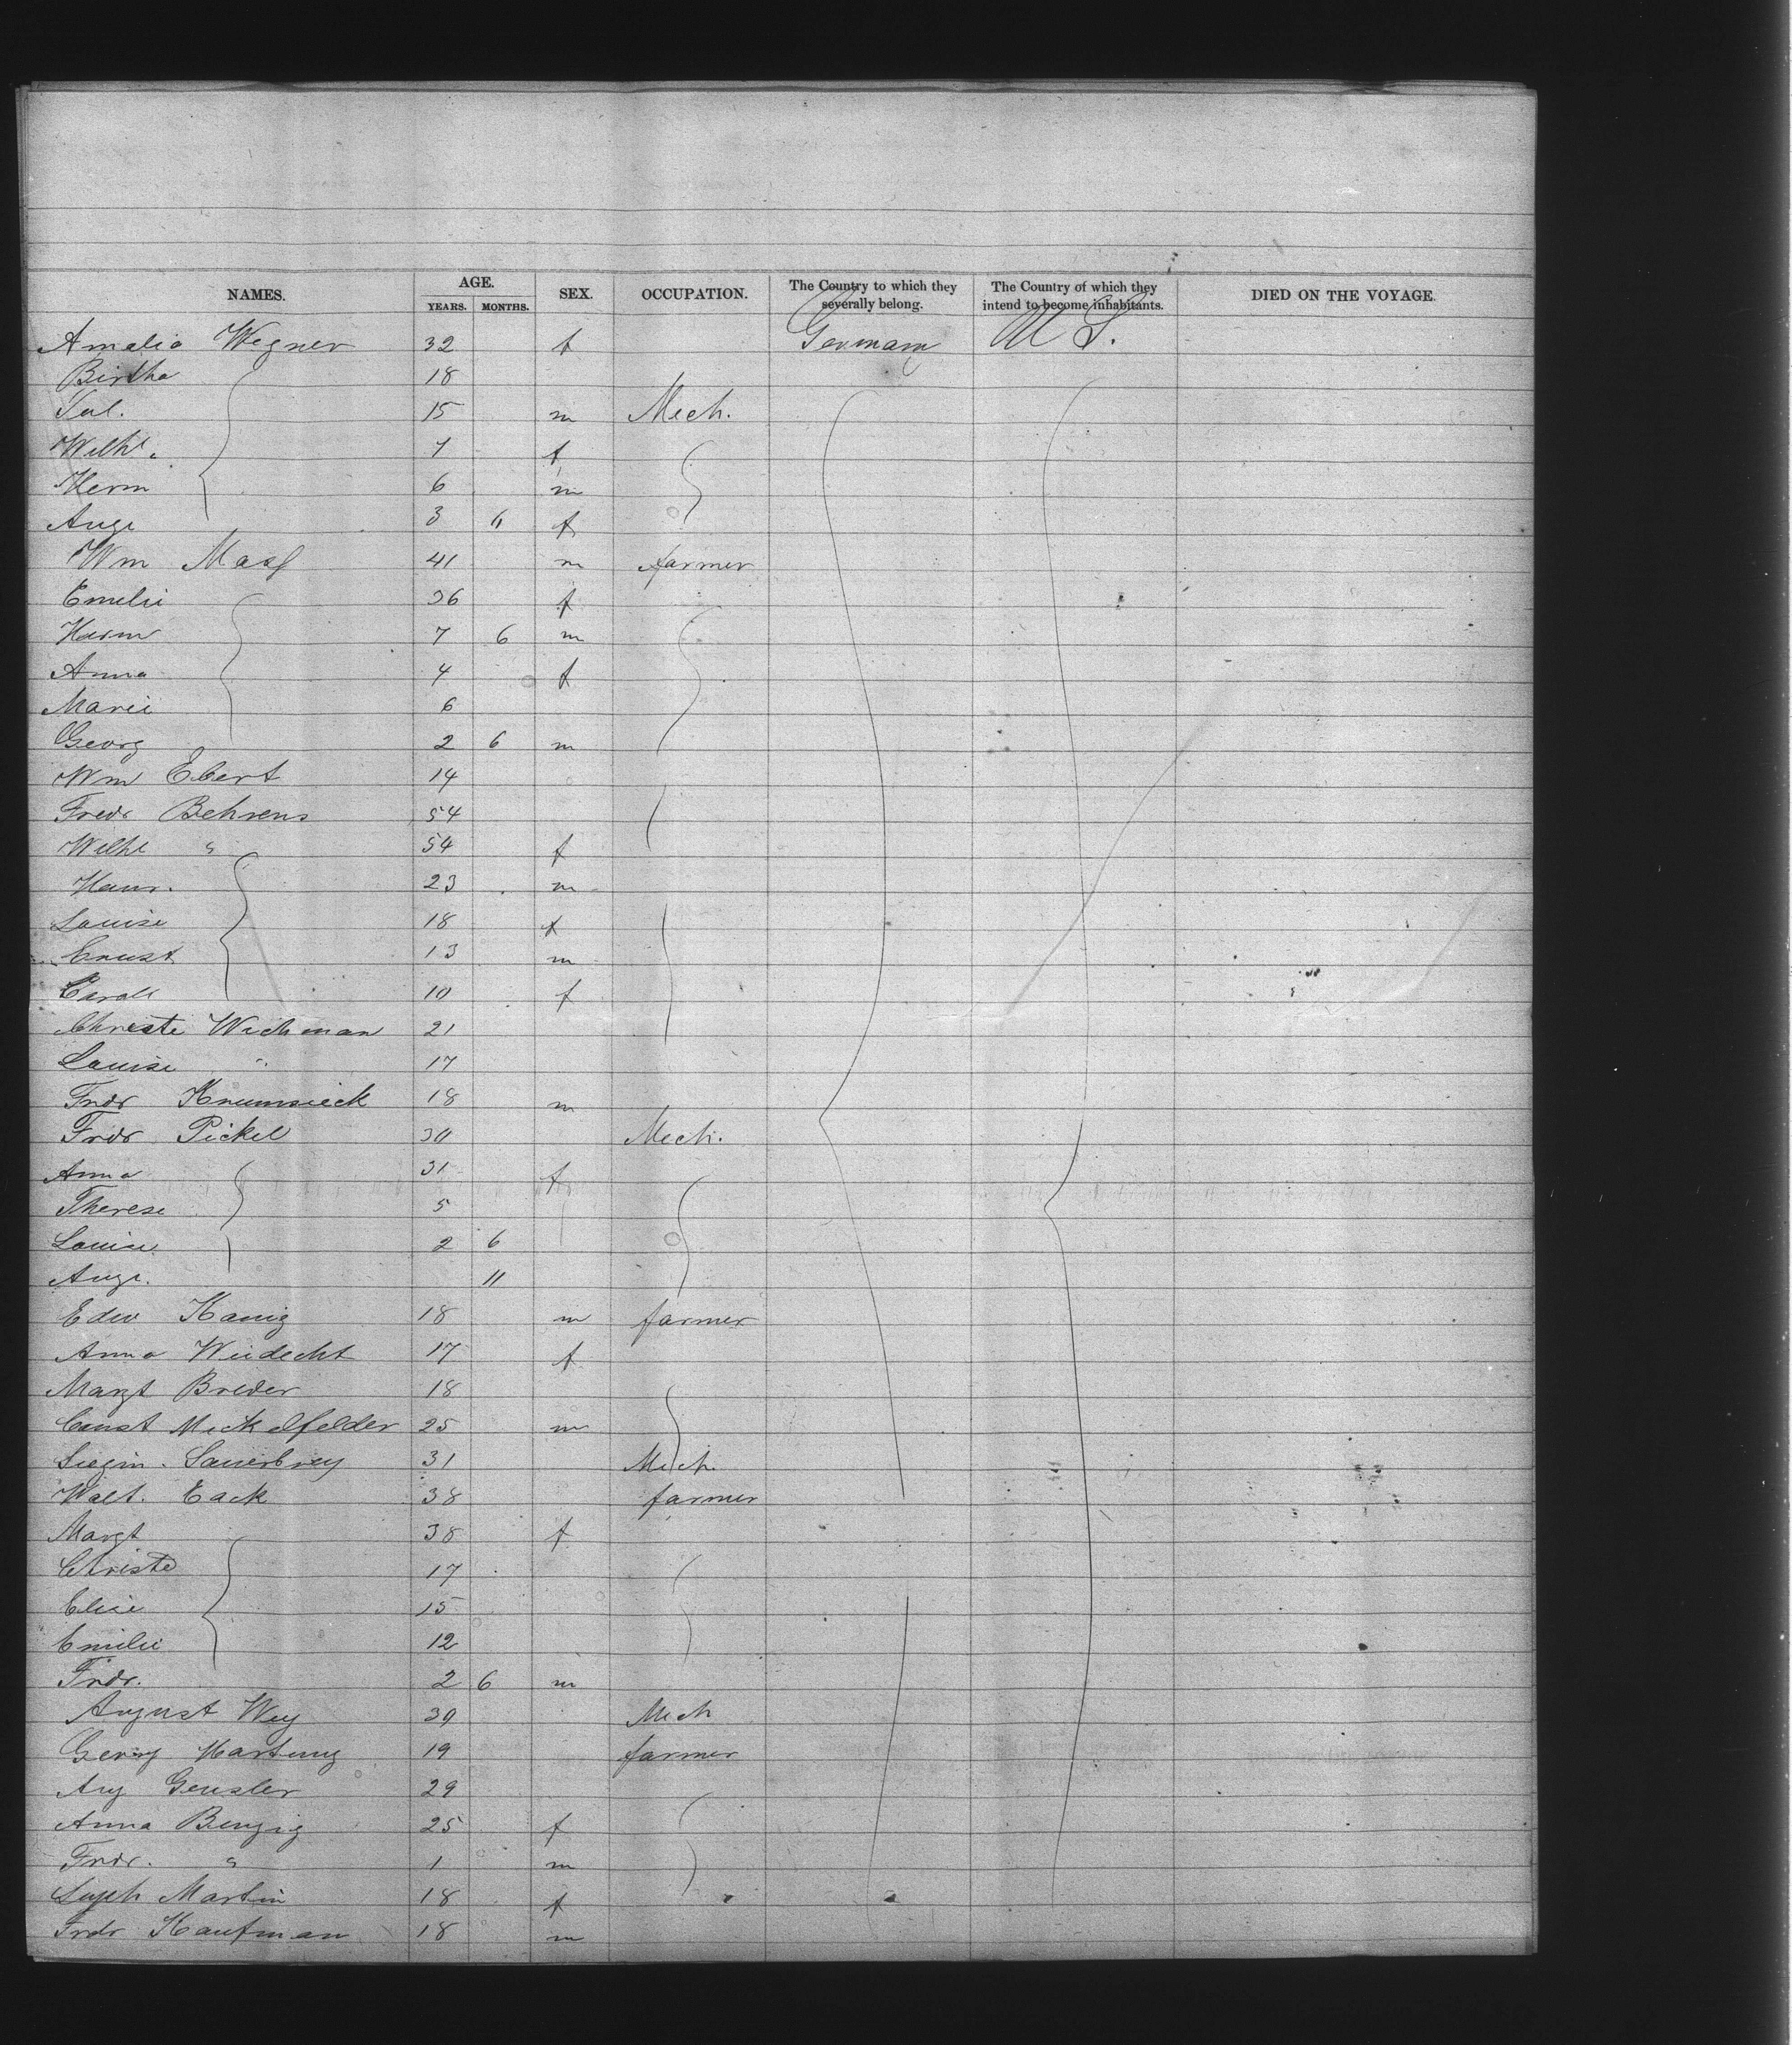 NAMES. AGE. YEARS. MONTHS. SEX. OCCUPATION. The Country to which they severally belong. The Country of which they intend to become inhabitants. DIED ON THE VOYAGE.
Amalia Wegner 32 f Germany U S.
Bertha 18
Jul. 15 m Mech.
Wilhe. 7 f
Herm 6 m
Auge 3 6 f
Wm Maas 41 m farmer
Emelie 36 f
Herm 7 6 m
Anna 4 f
Marie 6
Georg 2 6 m
Wm Ebert 14
Fredr Behrens 54
Wilhe " 54 f
Heinr. 23 m
Louise 18 f
Ernst 13 m
Carole 10 f
Christe Wichman 21
Louise " 17
Fredr Krumsieck 18 m
Fredr Pickel 30 Mech.
Anna 31 f
Therese 5
Louise 2 6
Auge. 11
Edw Kanig 18 m farmer
Anna Weidecht 17 f
Margt Breder 18
Ernst Mickelfelder 25 m
Siegm. Sauerbrey 31 Mech.
Walt. Eack 38 farmer
Margt 38 f
Christe 17
Elise 15
Emilie 12
Fredr. 2 6 m
August Wey 39 Mech
Georg Hartung 19 farmer
Aug Gensler 29
Anna Benzig 25 f
Fredr. " 1 m
Soph Martin 18 f
Fredr Kaufman 18 m